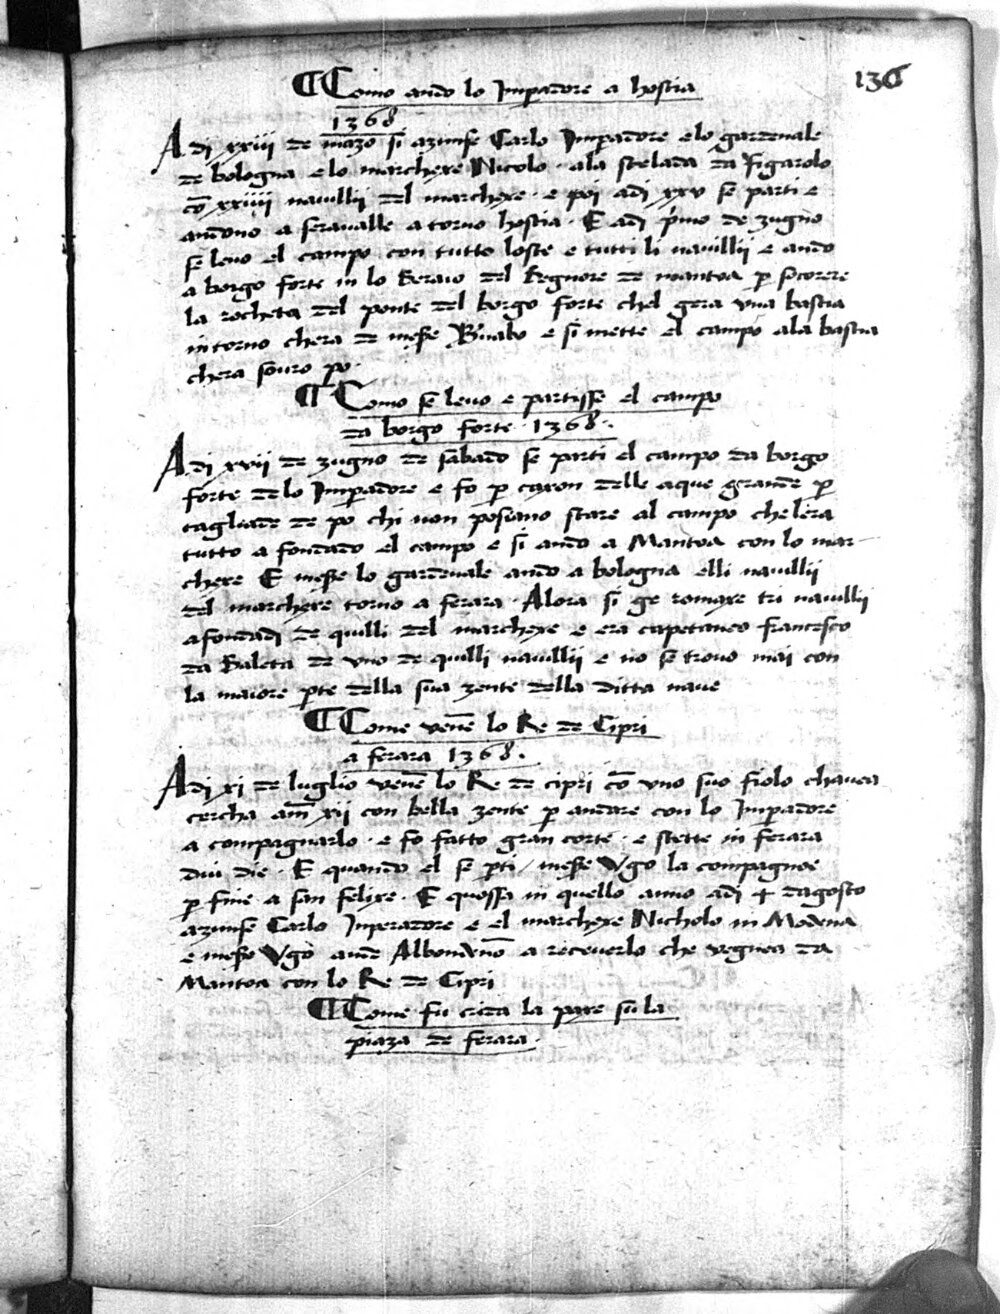 136
¶ Como ando lo Imperadore a hostia
1368
Adi xxiii de mazo si azunse Carlo Imperadore e lo gardenale
de bologna e lo marchexe Nicolo · ala stelada da Figarolo
cō xxiiii navillii del marchexe · e poi adi xxv se parti e
andono a seravalle a torno hostia · E adi p̄mo de zugno
se levo el campo con tutto loste e tutti li navillii e ando
a borgo forte in lo Seraio del Segnore de mantoa p socorere
la rocheta del ponte del borgo forte chel gera una bastia
intorno chera de mess Bnabo e si mette el campo ala bastia
chera souro po ·
¶ Como se levo e partisse el campo
da borgo forte · 1368 ·
Adi xvii de zugno de sabado se parti el campo da borgo
forte de lo Imperadore e fo p caxon delle aque grande p
tagliade de po chi non posiano stare al campo che lera
tutto a fondado el campo e si ando a Mantoa con lo mar-
chexe E mess lo gardenale ando a bologna elli navillii
del marchexe torno a ferara · Alora si ge romaxe tri navillii
afondadi de quilli del marchexe e era capetaneo francesco
da Saleta de uno de quilli navillii e no se trovo mai con
la maiore pte della sua zente della ditta nave
¶ Come venē lo Re de Cipri
a ferara 1368 ·
Adi xi de luglio venē lo Re de cipri cō uno suo fiolo chavea
cercha anī xii con bella zente p andare con lo Imperadore
a compagnarlo · e fo fatto gran corte · e stette in ferara
dui die · E quando el se pti / mess Ugo la compagnoe
p fine a san felixe · E quossa in quello anno adi 4 dagosto
azunse Carlo Inperadore e el marchexe Nicholo in Modena
e mess Ugo andò Albondenō a receverlo che vegnea da
Mantoa con lo Re de Cipri
¶ Come fu crida la paxe su la
piaza de ferara ·